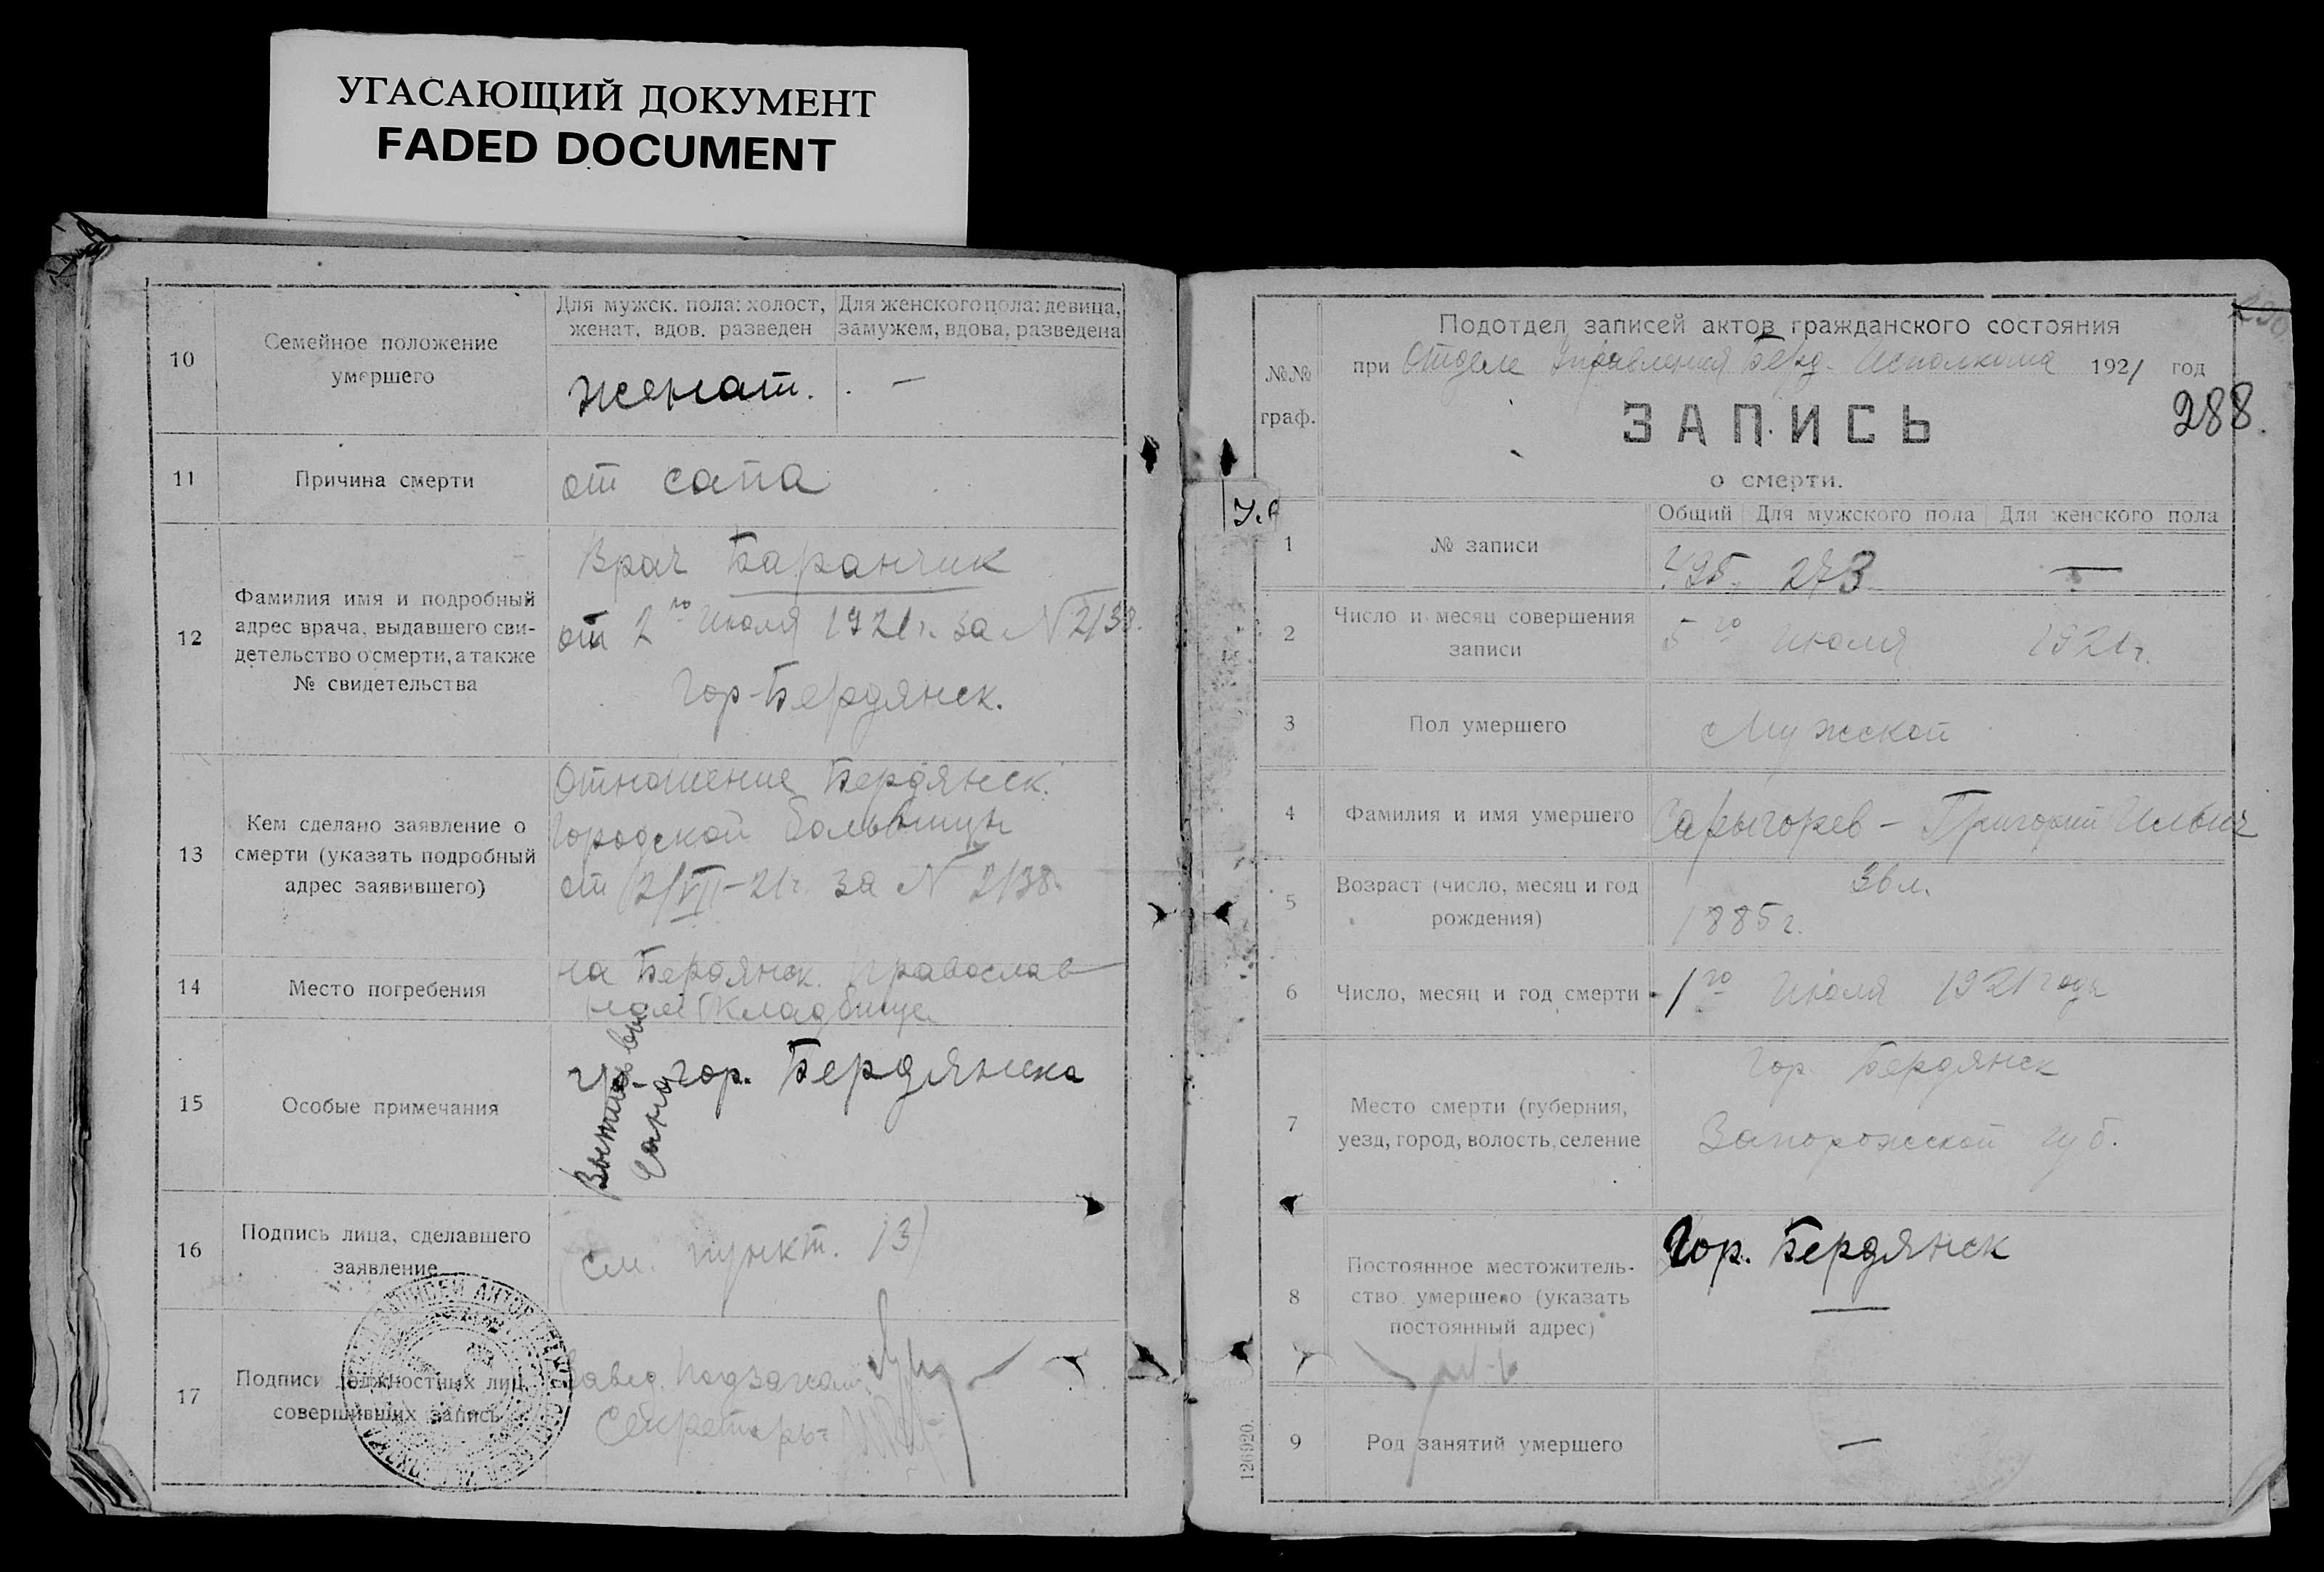 УГАСАЮЩИЙ ДОКУМЕНТ
FADED DOCUMENT
10
Семейное положение
умершего
Для мужск. пола: холост,
женат, вдов. разведен
Для женского пола: девица,
замужем, вдова, разведена
женат.
—
11
Причина смерти
от сапа
12
Фамилия имя и подробный
адрес врача, выдавшего сви-
детельство о смерти, а также
№ свидетельства
Врач Баранчик
от 2го Июля 1921г. за N 2138.
Гор-Бердянск.
13
Кем сделано заявление о
смерти (указать подробный
адрес заявившего)
Отношение Бердянск.
Городской больницы
от 2/VII-21г. за N 2138.
14
Место погребения
на Бердянск. Православ
ном Кладбище
15
Особые примечания
гр. гор. Бердянска
16
Подпись лица, сделавшего
заявление
(см. пункт. 13)
17
Подписи должностных лиц,
совершивших запись
Завед.
Секретарь
№№
граф.
Подотдел записей актов гражданского состояния
при Отделе Управления Берд. Исполкома 1921 год
288.
ЗАПИСЬ
о смерти.
1
№ записи
Общий
Для мужского пола
Для женского пола
495. 273 —
2
Число и месяц совершения
записи
5го Июля 1921г.
3
Пол умершего
Мужской
4
Фамилия и имя умершего
Сарыгорев - Григорий Ильич
5
Возраст (число, месяц и год
рождения)
36 л.
1885 г.
6
Число, месяц и год смерти
1го Июля 1921 года
7
Место смерти (губерния,
уезд, город, волость, селение
Гор. Бердянск
Запорожской губ.
8
Постоянное местожитель-
ство умершего (указать
постоянный адрес)
Гор. Бердянск
—
9
Род занятий умершего
—
126920.